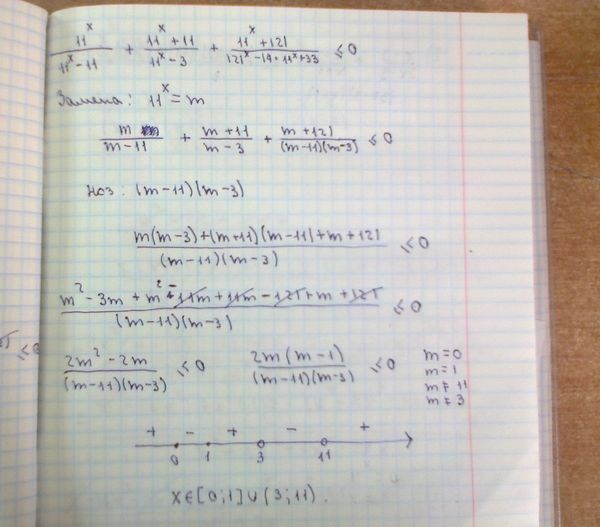 11^x/(11^x - 11) + (11^x + 11)/(11^x - 3) + (11^x + 121)/(121^x - 14·11^x + 33) ≤ 0
Замена: 11^x = m
m/(m - 11) + (m + 11)/(m - 3) + (m + 121)/((m - 11)(m - 3)) ≤ 0
ноз: (m - 11)(m - 3)
(m(m - 3) + (m + 11)(m - 11) + m + 121)/((m - 11)(m - 3)) ≤ 0
(m² - 3m + m² - 11m + 11m - 121 + m + 121)/((m - 11)(m - 3)) ≤ 0
(2m² - 2m)/((m - 11)(m - 3)) ≤ 0 2m(m - 1)/((m - 11)(m - 3)) ≤ 0
m = 0
m = 1
m ≠ 11
m ≠ 3
+ - + - +
0 1 3 11
x ∈ [0;1] ∪ (3;11).